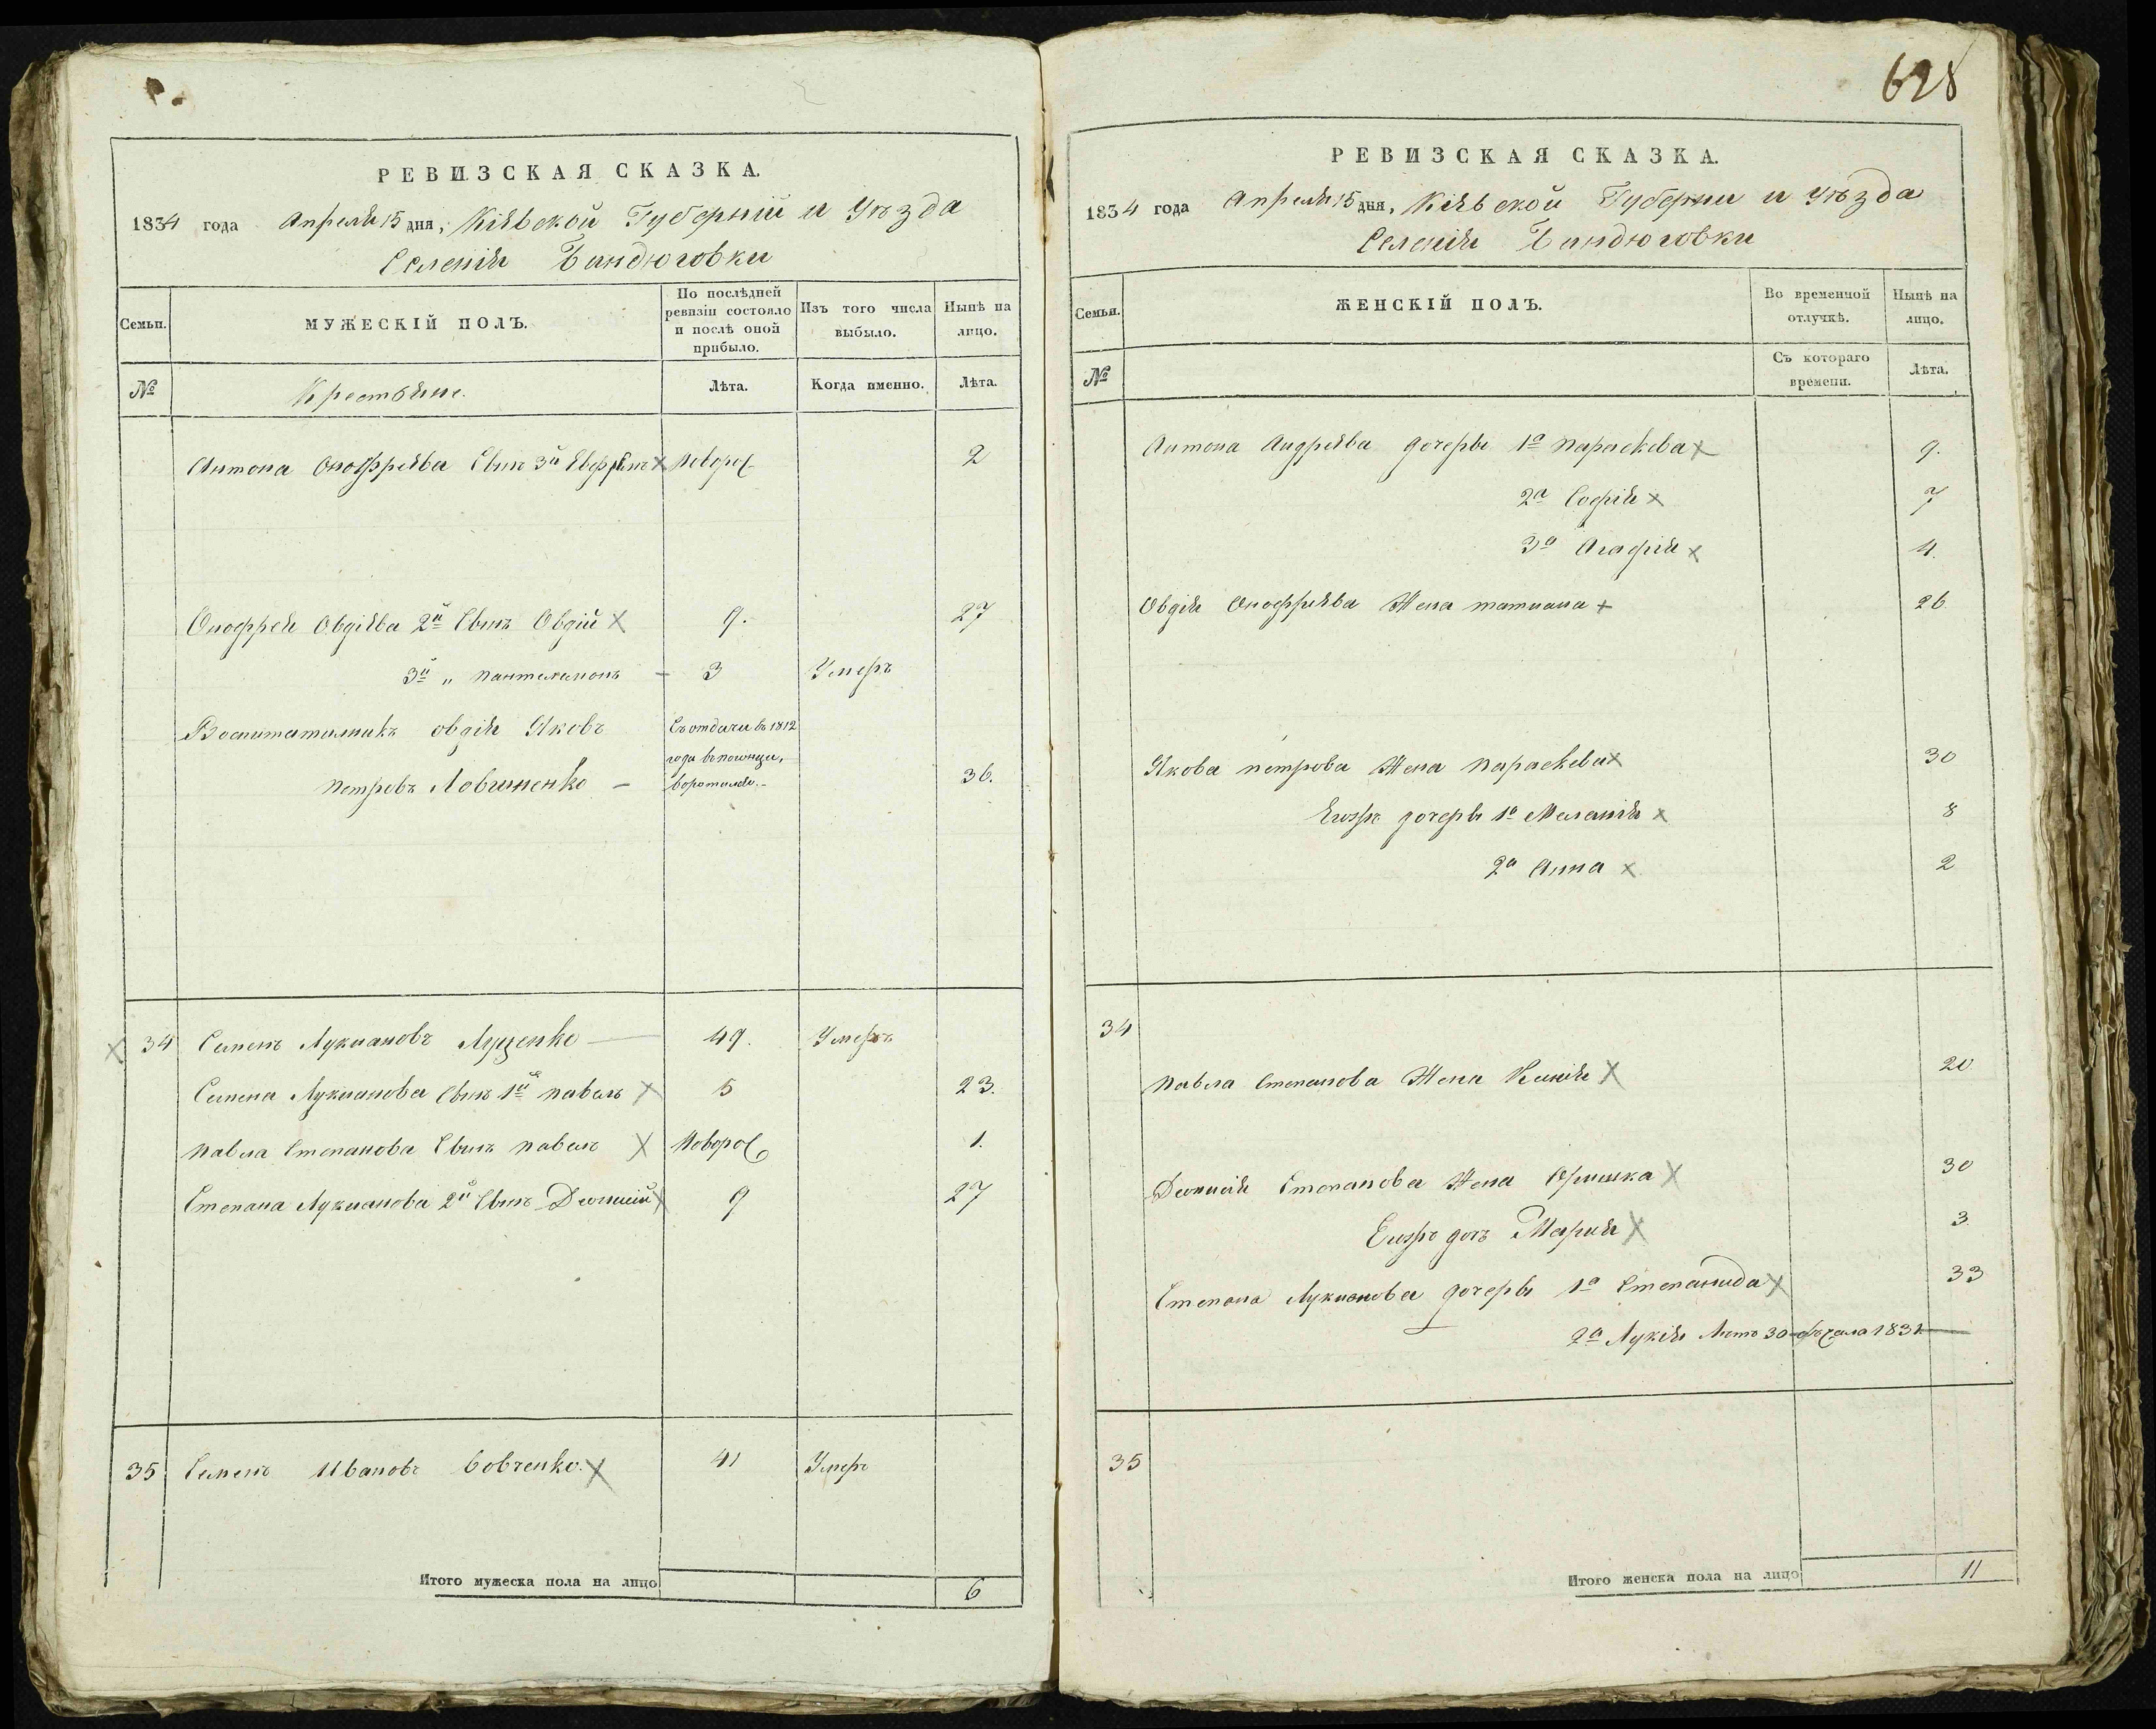 РЕВИЗСКАЯ СКАЗКА.
1834 года Апреля 15 дня, Кіевской Губерніи и Уѣзда
Селенія Бандюговки
Семьи.
МУЖЕСКІЙ ПОЛЪ.
По послѣдней ревизіи состояло и послѣ оной прибыло.
Изъ того числа выбыло.
Нынѣ на лицо.
№
Крестьяне.
Лѣта.
Когда именно.
Лѣта.
Антона Оноффріева Сынъ 3й х Новорож 2
Оноффрея Овдіева 2й Сынъ Овдій х 9. 27
3й " Пантелимонъ - 3 Умеръ
Воспитательникъ Овдія Яковъ Съ отдачи въ 1812
года
Петровъ - воротился.- 36.
х 34 Семенъ Лукиановъ Луценко 49. Умеръ
Семена Лукианова Сынъ 1й Павелъ х 5 23.
Павла Степанова Сынъ Павелъ х Новорож 1.
Степана Лукианова 2й Сынъ Дионисій х 9 27
35 Семенъ Ивановъ Вовченко. х 41 Умеръ
Итого мужеска пола на лицо 6
628
РЕВИЗСКАЯ СКАЗКА.
1834 года Апреля 15 дня, Кіевской Губерни и Уѣзда
Селенія Бандюговки
Семьи.
ЖЕНСКІЙ ПОЛЪ.
Во временной отлучкѣ.
Нынѣ на лицо.
№
Съ котораго времени.
Лѣта.
Антона Андріева дочеры 1а Параскева х 9.
2а Софія х 7
3а Агафія х 4.
Овдія Оноффріева Жена Татиана х 26
Якова Петрова Жена Параскева х 30
Еіозъ дочеры 1а Меланія х 8
2а Анна х 2
34
Павла Степанова Жена Ксенія х 20
Дионисія Степанова Жена Оришка х 30
Еіозъ доч Марія х 3
Степана Лукианова дочеры 1а Степанида х 33
2а Лукія Летъ 30 1831
35
Итого женска пола на лицо 11